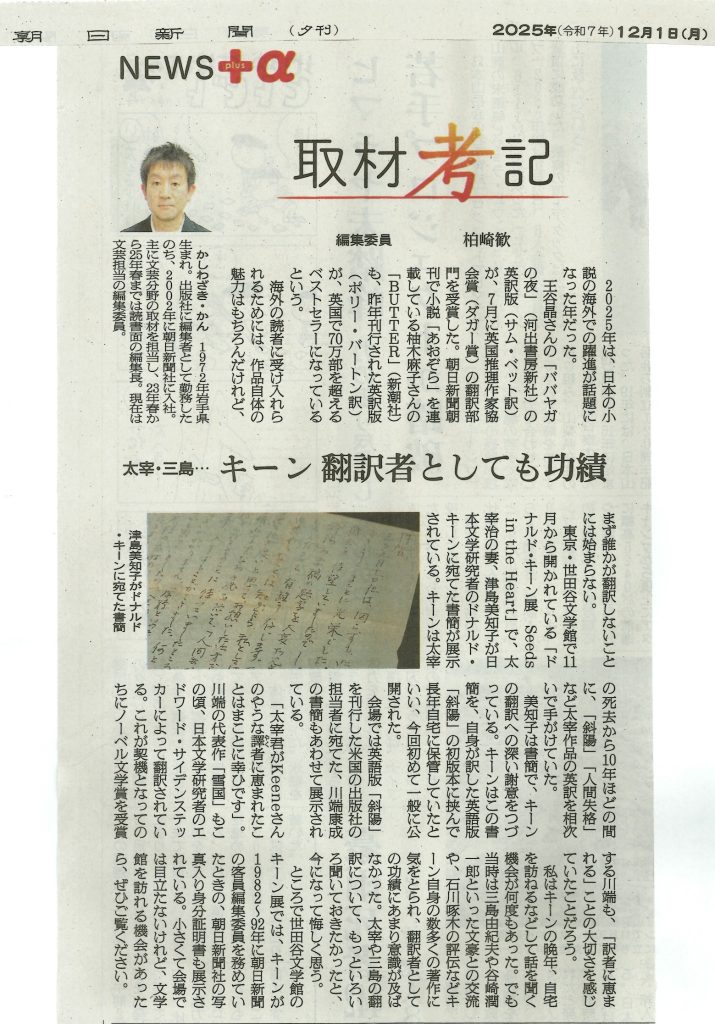 朝日新聞
(夕刊)
2025年(令和7年)12月1日(月)
NEWS plus +α
取材考記
編集委員　柏崎歓
かしわざき・かん　1972年岩手県
生まれ。出版社に編集者として勤務した
のち、2002年に朝日新聞社に入社。
主に文芸分野の取材を担当し、23年春か
ら25年春までは読書面の編集長。現在は
文芸担当の編集委員。
2025年は、日本の小
説の海外での躍進が話題に
なった年だった。
王谷晶さんの「ババヤガ
の夜」（河出書房新社）の
英訳版（サム・ベット訳）
が、7月に英国推理作家協
会賞（ダガー賞）の翻訳部
門を受賞した。朝日新聞朝
刊で小説「あおぞら」を連
載している柚木麻子さんの
「BUTTER」（新潮社）
も、昨年刊行された英訳版
（ポリー・バートン訳）
が、英国で70万部を超える
ベストセラーになっている
という。
海外の読者に受け入れら
れるためには、作品自体の
魅力はもちろんだけれど、
太宰・三島… キーン 翻訳者としても功績
まず誰かが翻訳しないこと
には始まらない。
東京・世田谷文学館で11
月から開かれている「ド
ナルド・キーン展　Seeds
in the Heart」で、太
宰治の妻、津島美知子が日
本文学研究者のドナルド・
キーンに宛てた書簡が展示
されている。キーンは太宰
津島美知子がドナルド
・キーンに宛てた書簡
の死去から10年ほどの間
に、「斜陽」「人間失格」
など太宰作品の英訳を相次
いで手がけていた。
美知子は書簡で、キーン
の翻訳への深い謝意をつづ
っている。キーンはこの書
簡を、自身が訳した英語版
「斜陽」の初版本に挟んで
長年自宅に保管していたと
いい、今回初めて一般に公
開された。
会場では英語版「斜陽」
を刊行した米国の出版社の
担当者に宛てた、川端康成
の書簡もあわせて展示され
ている。
「太宰君がKeeneさん
のやうな譯者に恵まれたこ
とはまことに幸ひです」。
川端の代表作「雪国」もこ
の頃、日本文学研究者のエ
ドワード・サイデンステッ
カーによって翻訳されてい
る。これが契機となっての
ちにノーベル文学賞を受賞
する川端も、「訳者に恵ま
れる」ことの大切さを感じ
ていたことだろう。
私はキーンの晩年、自宅
を訪ねるなどして話を聞く
機会が何度もあった。でも
当時は三島由紀夫や谷崎潤
一郎といった文豪との交流
や、石川啄木の評伝などキ
ーン自身の数多くの著作に
気をとられ、翻訳者として
の功績にあまり意識が及ば
なかった。太宰や三島の翻
訳について、もっといろい
ろ聞いておきたかったと、
今になって悔しく思う。
ところで世田谷文学館の
キーン展では、キーンが
1982〜92年に朝日新聞
の客員編集委員を務めてい
たときの、朝日新聞社の写
真入り身分証明書も展示さ
れている。小さくて会場で
は目立たないけれど、文学
館を訪れる機会があった
ら、ぜひご覧ください。